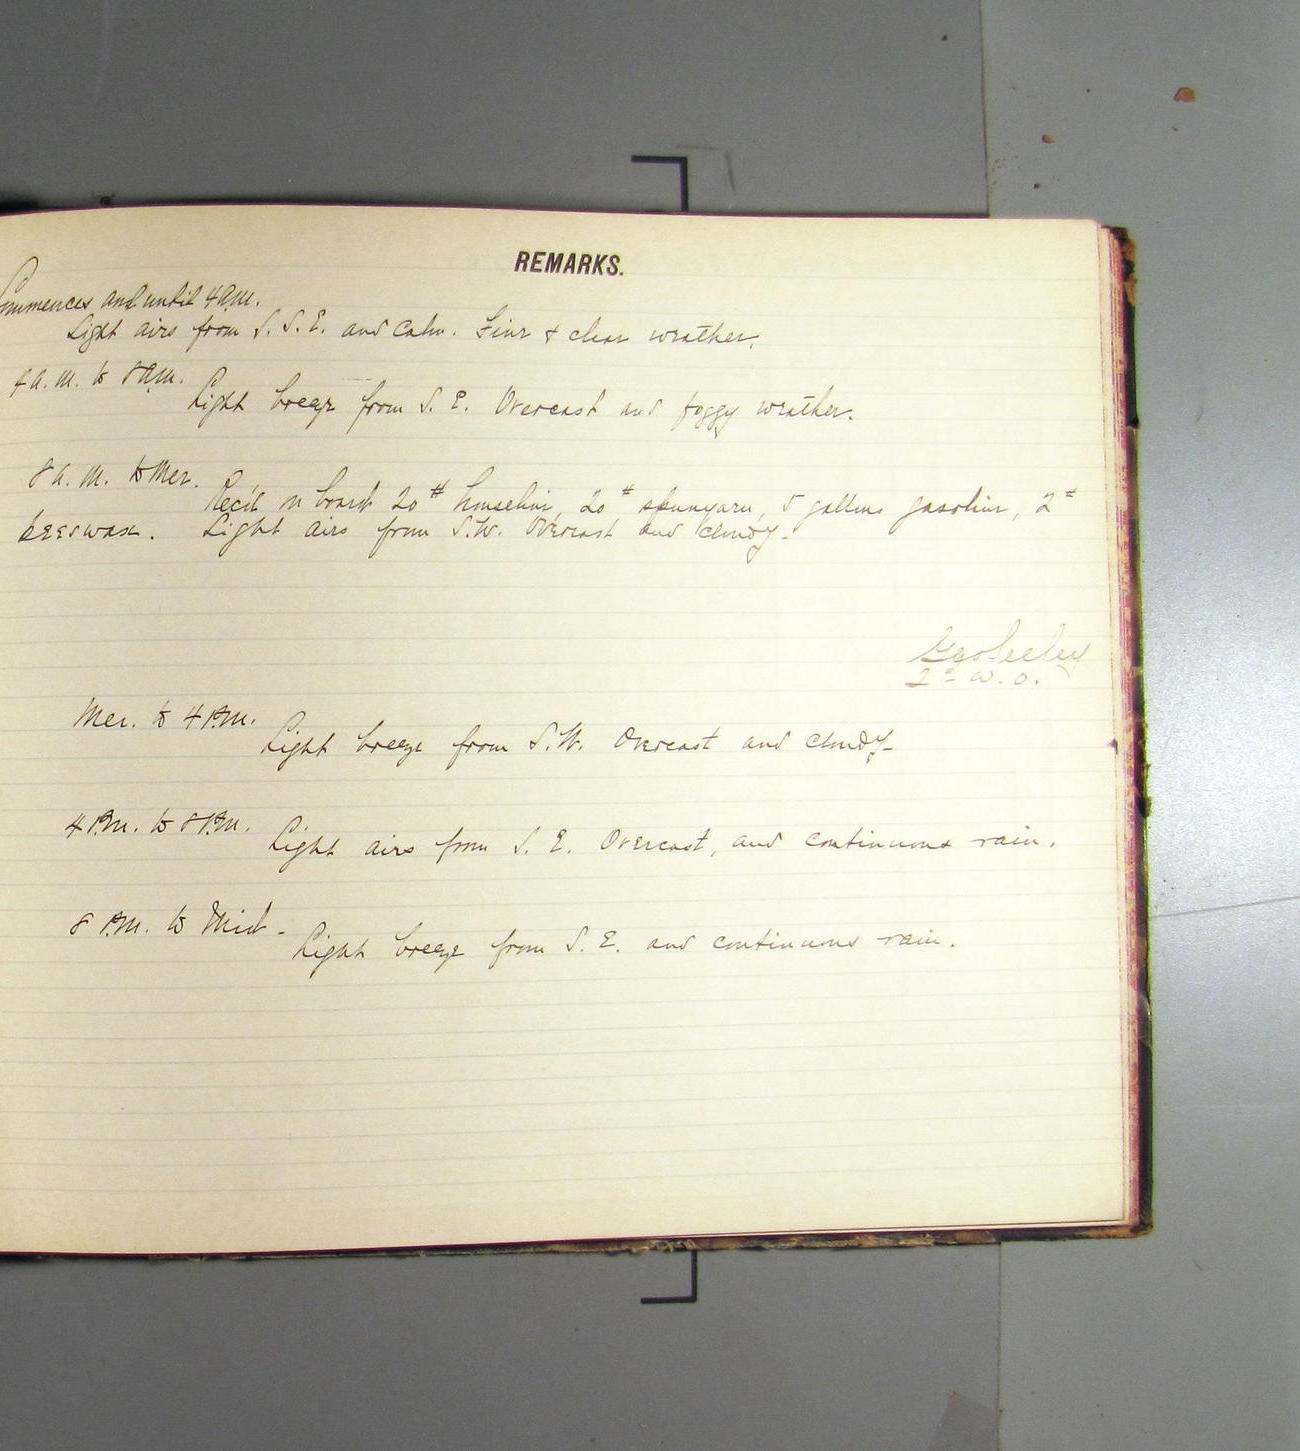 REMARKS.
Commences and until 4 a.m.
Light airs from S. S. E. and calm. Fine & clear weather.
4 a. m. to 8 a.m.
Light breeze from S. E. Overcast and foggy weather.
8 a. m. to Mer.
Rec'd on board 20 # houseline, 20 # spunyarn, 5 gallons gasoline, 2 #
beeswax. Light airs from S.W. Overcast and cloudy.
Seeley
2d W. O.
Mer. to 4 P.M.
Light breeze from S.W. Overcast and cloudy.
4 P.M. to 8 P.M.
Light airs from S. E. Overcast, and continuous rain.
8 P.M. to Mid.
Light breeze from S. E. and continuous rain.